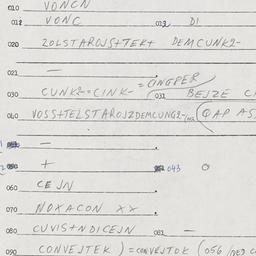 010 VONCN
012 VONC 013 DI
020 ZOLSTAROJS+TER+ DEMCUNK2-
021 —
030 CUNK2-=CINK- = ONGPER 031 BEJZE C
040 VOSS+TELSTAROJZDEMCUNG2- (QAP AS
—
+ 043 O
060 CEJN
070 NOXACON XX
080 CUVIS+NDICEJN 081 —
090 CONVEJTEK ) = CONVEJTOK (056/